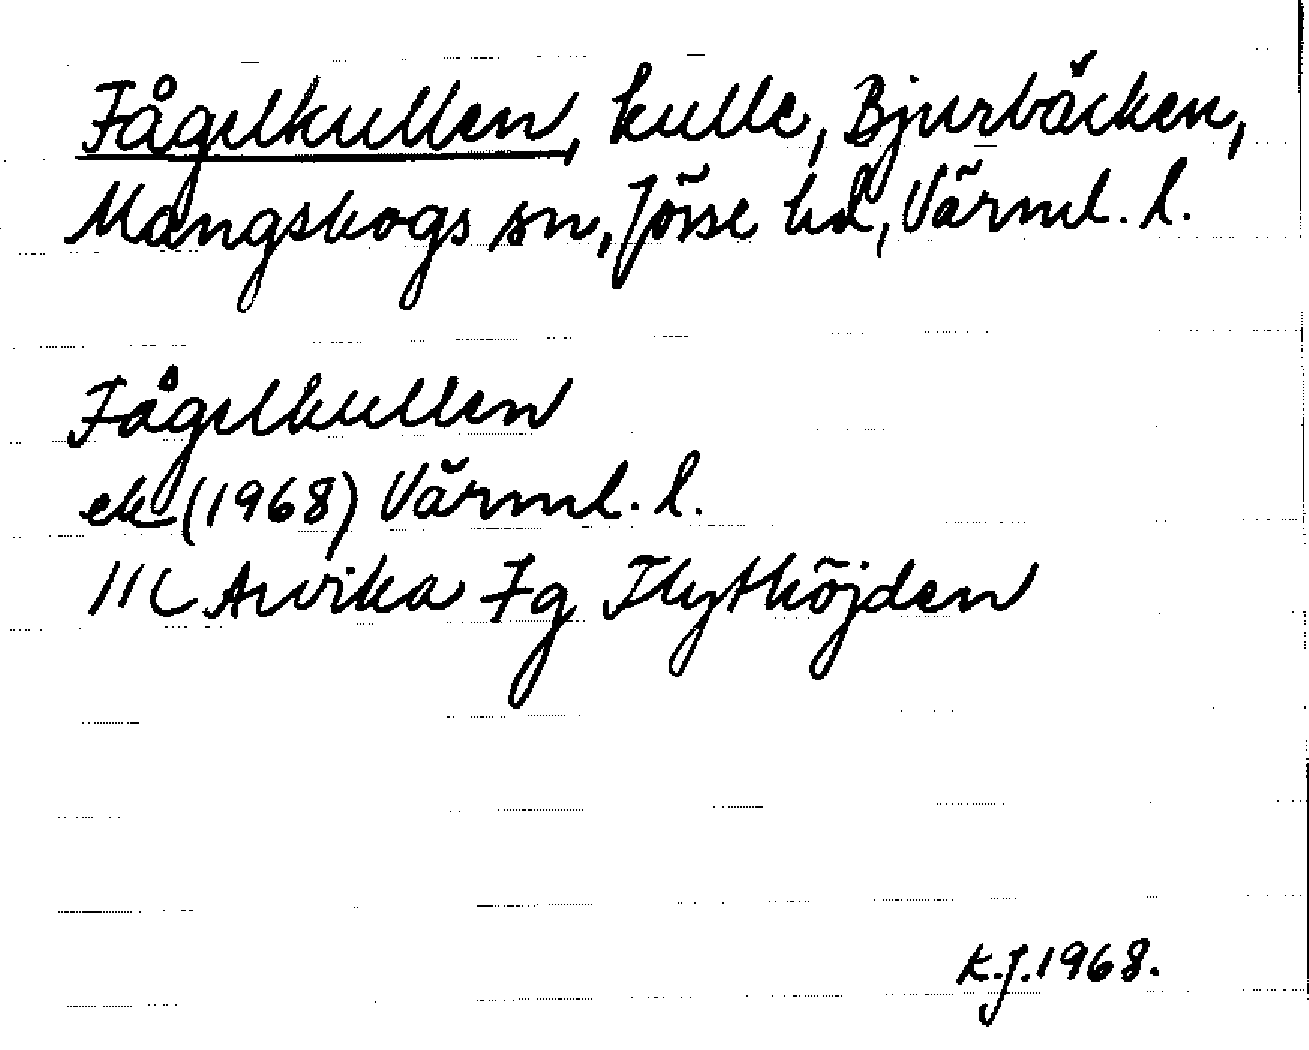 Fågelkullen, kulle, Bjurbäcken,
Mangskogs sn, Jösse hd, Värml. l.
Fågelkullen
ek (1968) Värml. l.
11C Arvika 7g Flythöjden
K.J. 1968.